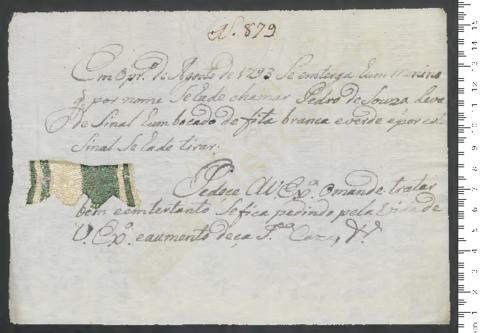 N. 879
Em o pr.º de Agosto de 1793 Se emterga hum minino
q̃ por nome Se lade chamar Pedro de Souza Leva
de Sinal hum bocado de fita branca e verde e por este
Sinal Se lade tirar.
Pedeçe A V. Ex.ª o mande tratar
bem e emtertanto Se fica pedindo pela Vida de
V. Ex.ª e aumento de ça